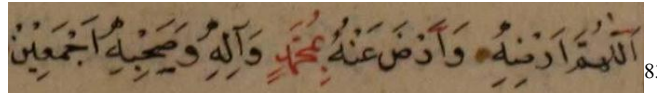 اَللّٰهُمَّ اَرْضِهِ وَاَرْضَ عَنْهُ بِمُحَمَّدٍ وَآلِهِ وَصَحْبِهِ اَجْمَعِينْ